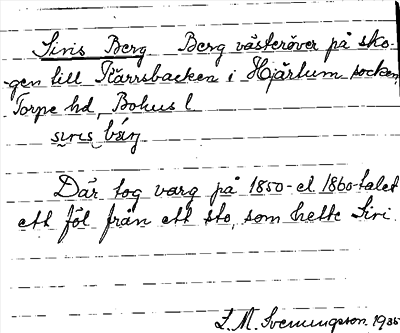 Siris Berg Berg västeröver på sko-
gen till Kärrsbacken i Hjärtum socken,
Torpe hd, Bohus l
Där tog varg på 1850- el. 1860-talet
ett föl från ett sto, som hette Siri.
L. M. Svenungsson 1935